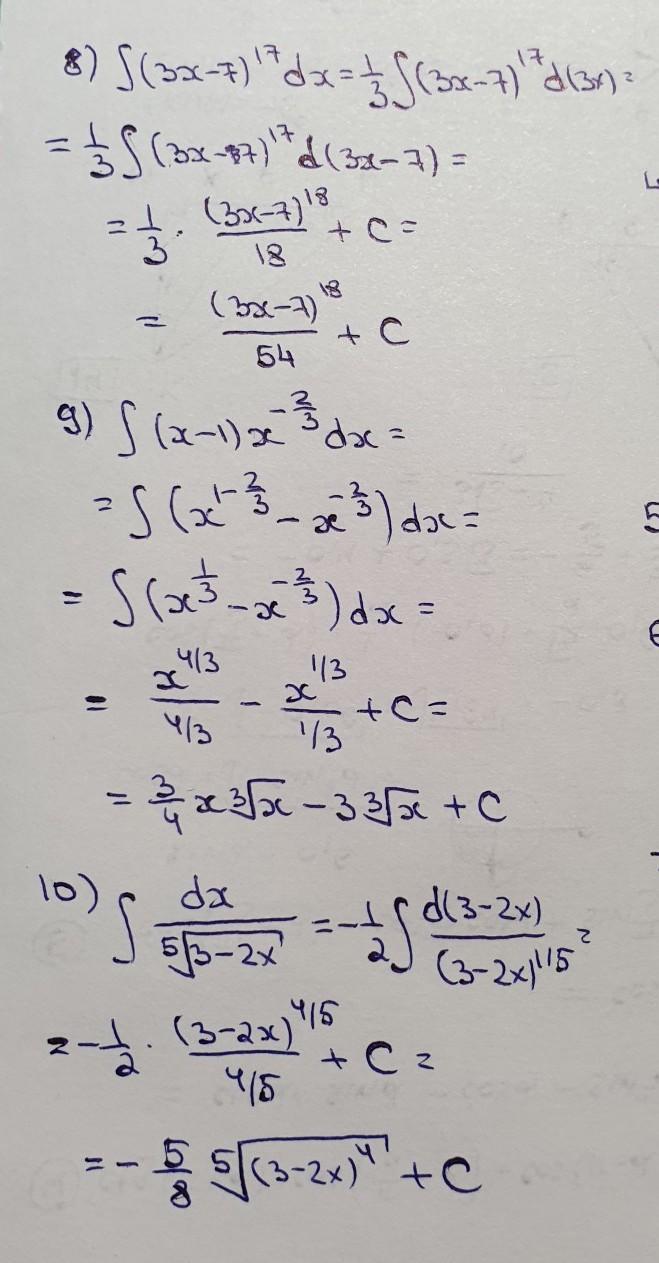 8) ∫(3x-7)^17 dx = 1/3 ∫(3x-7)^17 d(3x) =
= 1/3 ∫(3x-7)^17 d(3x-7) =
= 1/3 · (3x-7)^18/18 + C =
= (3x-7)^18/54 + C
9) ∫(x-1)x^(-2/3) dx =
= ∫(x^(1-2/3) - x^(-2/3)) dx =
= ∫(x^(1/3) - x^(-2/3)) dx =
= x^(4/3)/(4/3) - x^(1/3)/(1/3) + C =
= 3/4 x ∛x - 3 ∛x + C
10) ∫ dx/⁵√(3-2x) = -1/2 ∫ d(3-2x)/(3-2x)^(1/5) =
= -1/2 · (3-2x)^(4/5)/(4/5) + C =
= - 5/8 ⁵√((3-2x)^4) + C